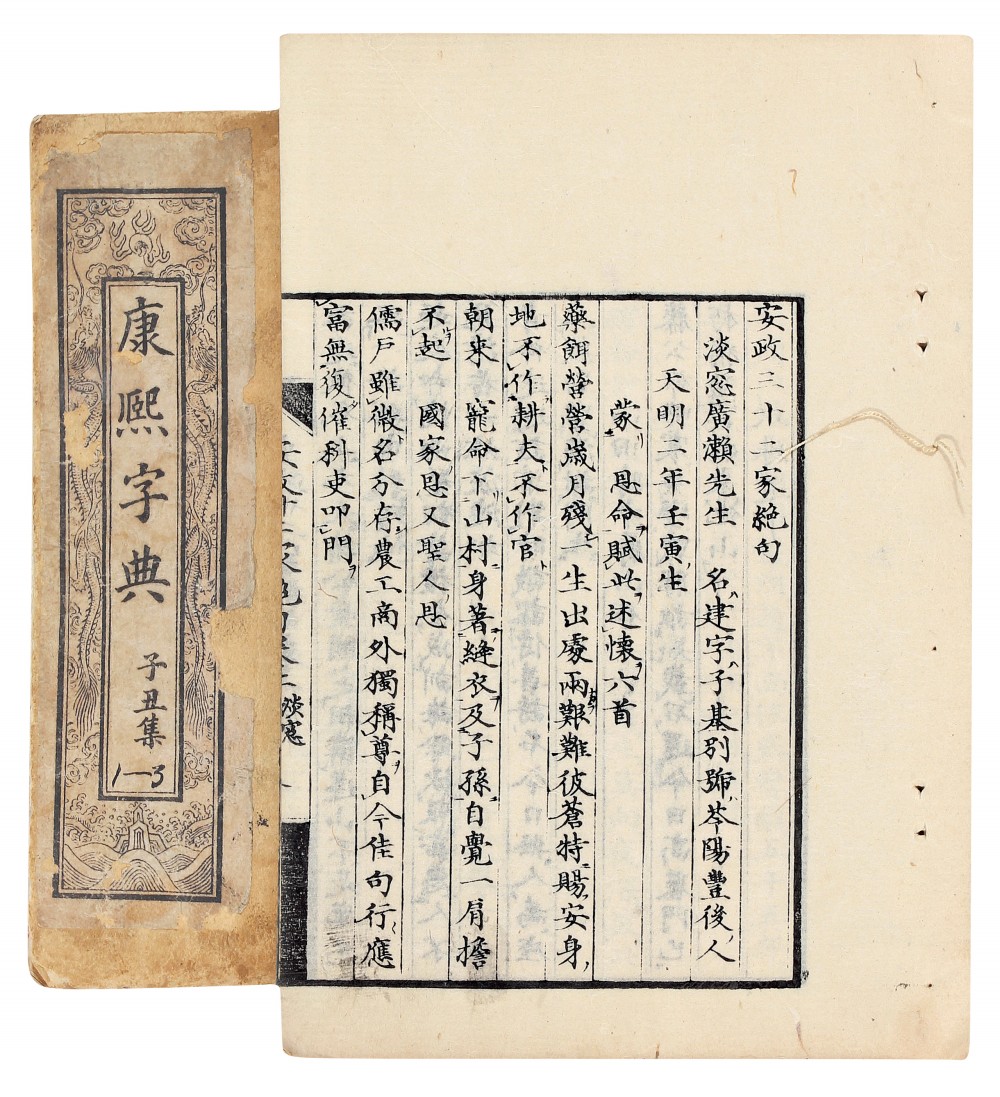 安政三十二家絶句
淡窓廣瀨先生 名建字子基別號苓陽豐後人
天明二年壬寅生
蒙 恩命賦此述懷六首
藥餌營營歲月殘一生出處兩艱難彼蒼特賜安身
地不作耕夫不作官
朝來 寵命下山村身著縫衣及子孫自覺一肩擔
不起 國家恩又聖人恩
儒戶雖微名分存農工商外獨稱尊自今佳句行應
富無復催科吏叩門
淡窓
康熙字典
子丑集
1-3